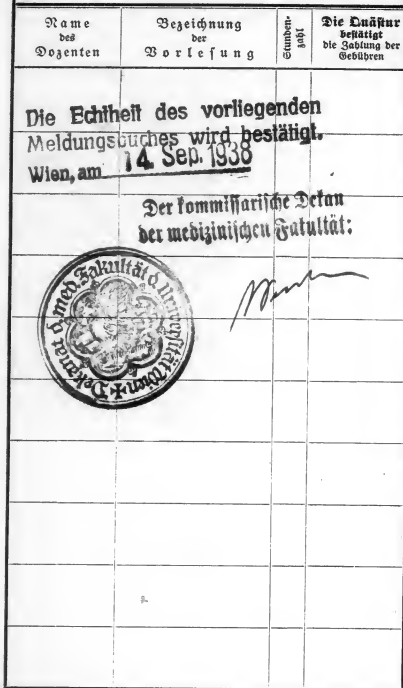 Name
des
Dozenten
Bezeichnung
der
Vorlesung
Stunden-
zahl
Die Quästur
bestätigt
die Zahlung der
Gebühren
Die Echtheit des vorliegenden
Meldungsbuches wird bestätigt.
Wien, am 14. Sep. 1938
Der kommissarische Dekan
der medizinischen Fakultät:
Dekanat d. med. Fakultät d. Universität Wien